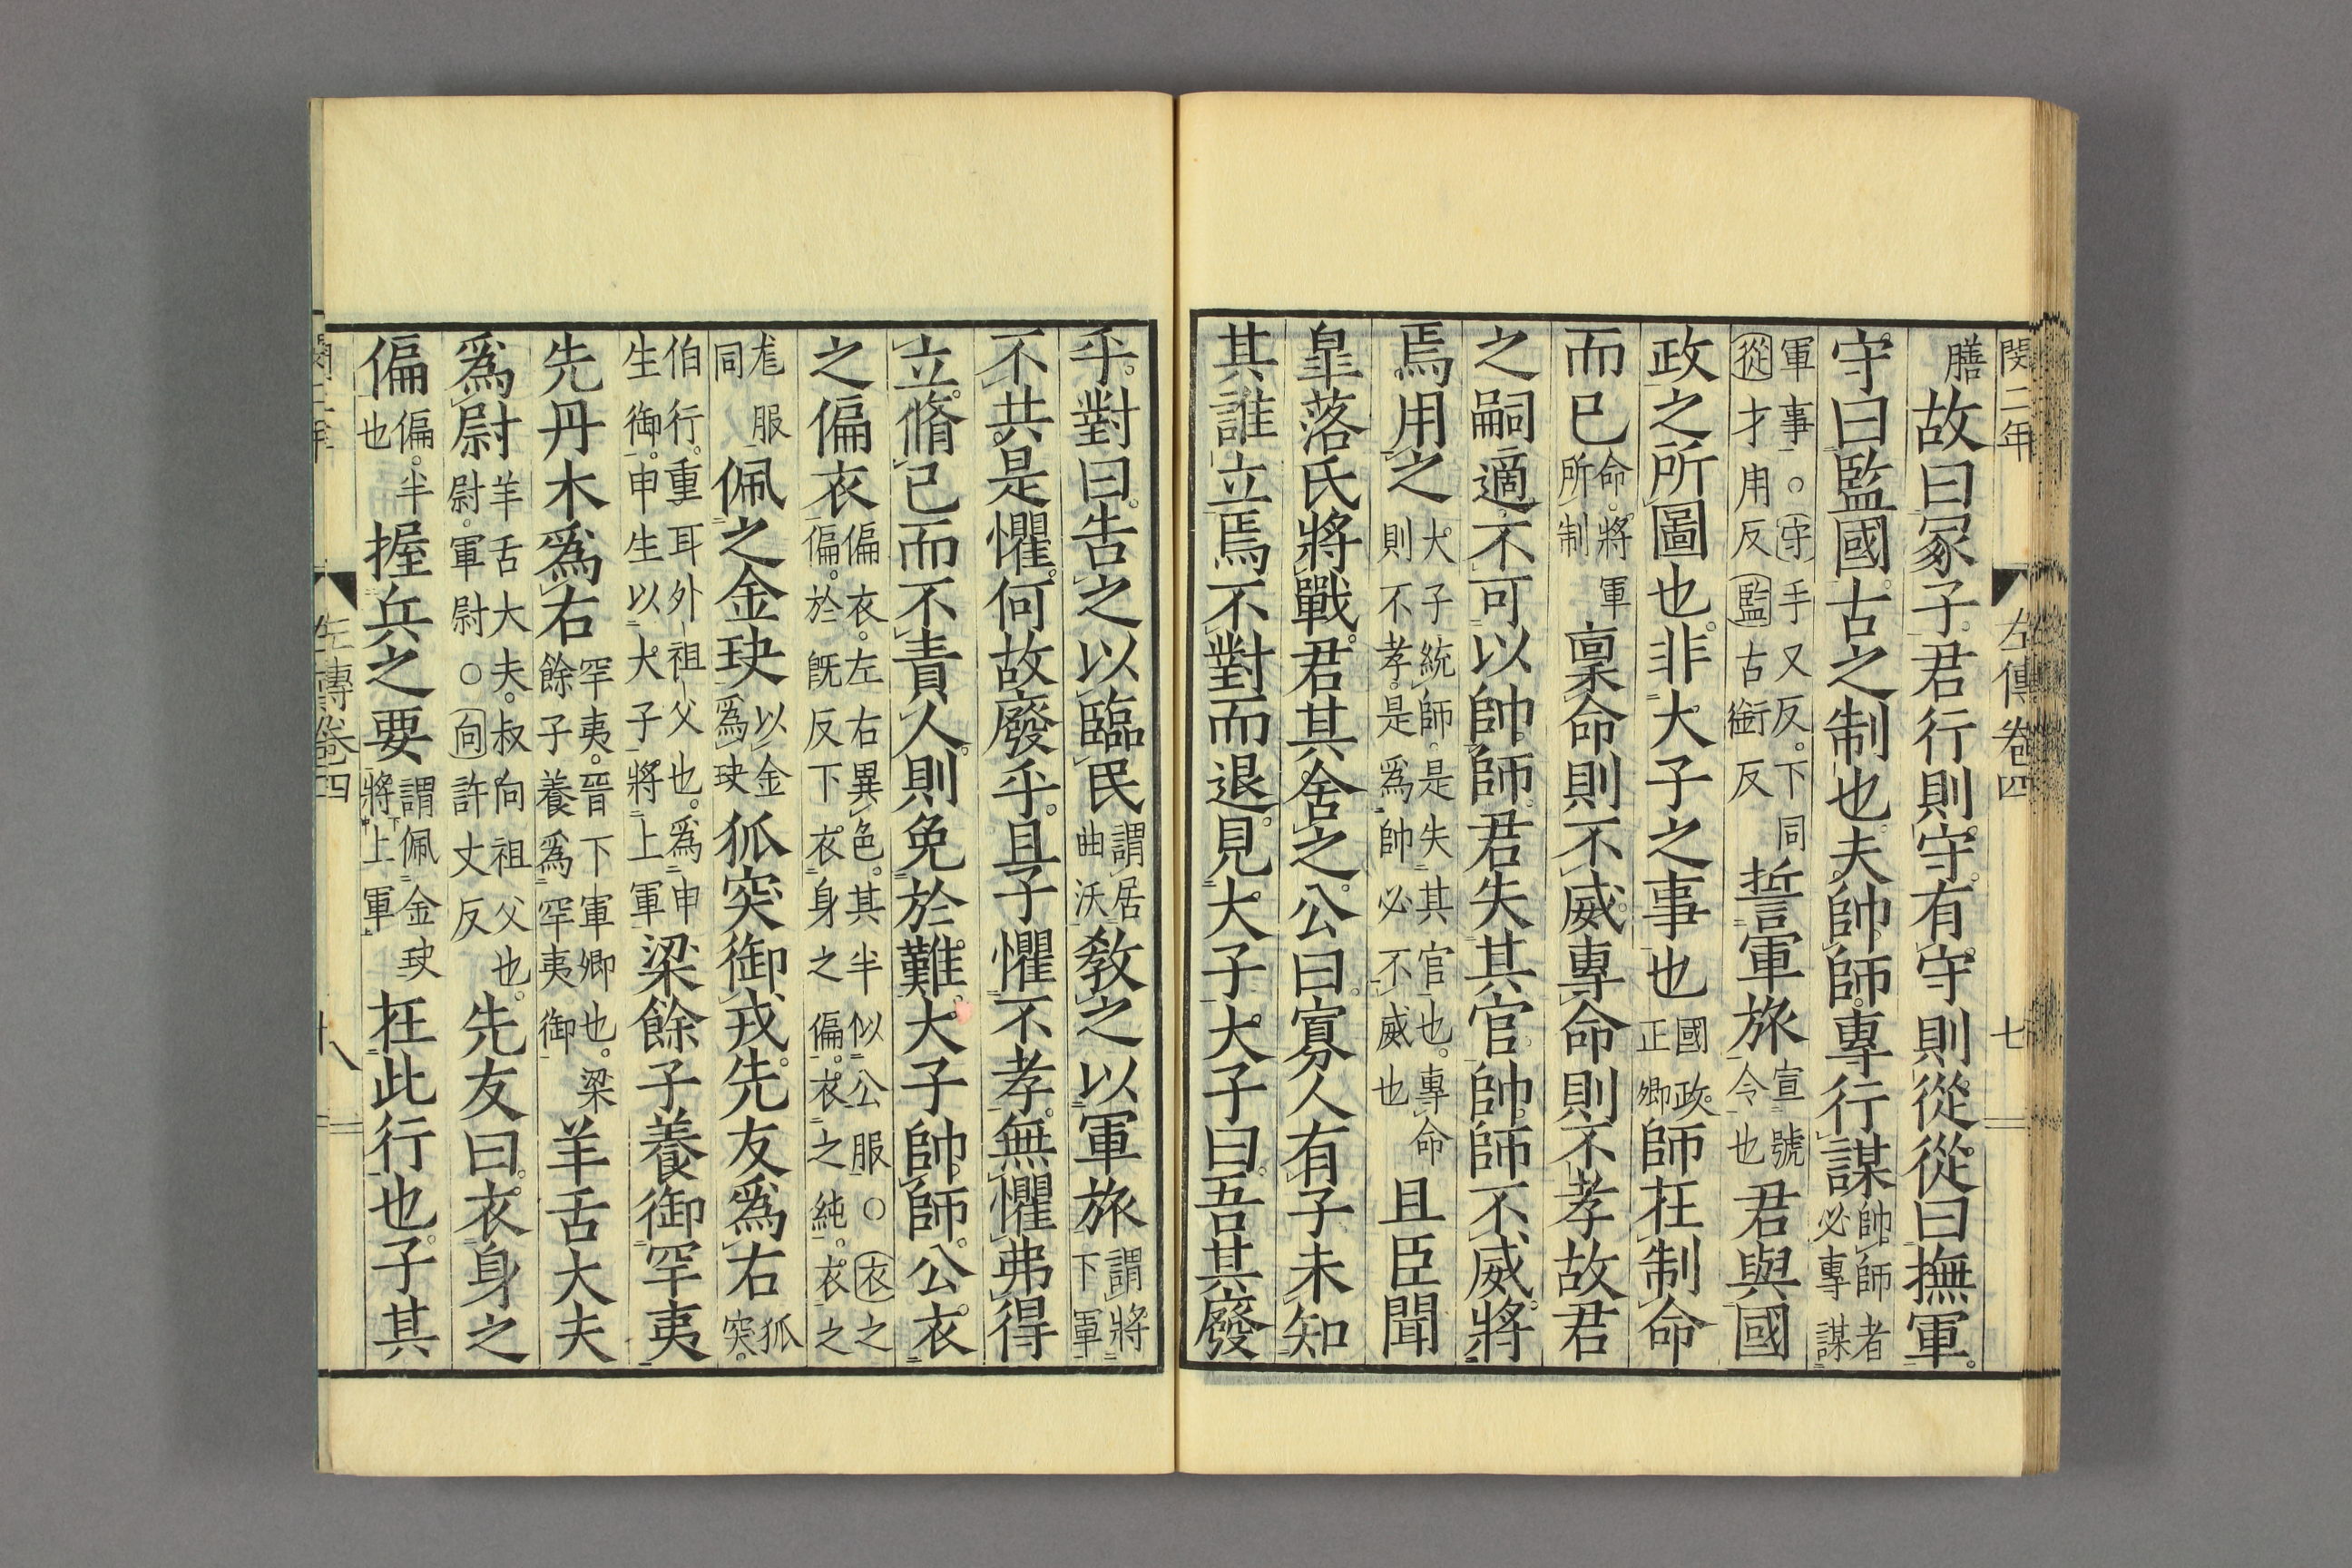 閔二年 左傳卷四 七
膳故曰冢子君行則守有守則從從曰撫軍
守曰監國古之制也夫帥師專行謀帥師者必專謀
軍事○守手又反下同從才用反監古銜反誓軍旅宣號令也君與國
政之所圖也非大子之事也國政正卿師在制命
而已命將軍所制稟命則不威專命則不孝故君
之嗣適不可以帥師君失其官帥師不威將
焉用之大子統師是失其官也專命則不孝是爲帥必不威也且臣聞
皐落氏將戰君其舍之公曰寡人有子未知
其誰立焉不對而退見大子大子曰吾其廢
乎對曰告之以臨民謂居曲沃教之以軍旅謂將下軍
不共是懼何故廢乎且子懼不孝無懼弗得
立脩己而不責人則免於難大子帥師公衣
之偏衣偏衣左右異色其半似公服○衣之偏於旣反下衣身之偏衣之純衣之
尨服同佩之金玦以金爲玦狐突御戎先友爲右狐突
伯行重耳外祖父也爲申生御申生以大子將上軍梁餘子養御罕夷
先丹木爲右罕夷晉下軍卿也梁餘子養爲罕夷御羊舌大夫
爲尉羊舌大夫叔向祖父也尉軍尉○向許丈反先友曰衣身之
偏偏半也握兵之要謂佩金玦將上軍在此行也子其
左傳卷四 八